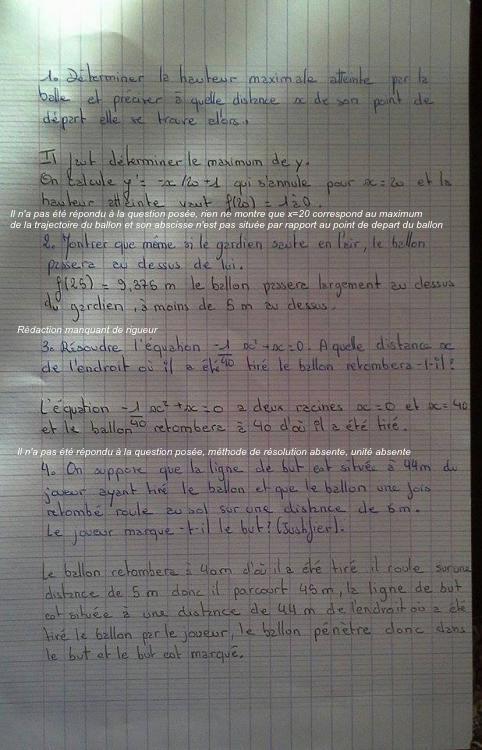 1. Déterminer la hauteur maximale atteinte par la
balle et préciser à quelle distance x de son point de
départ elle se trouve alors.
Il faut déterminer le maximum de y.
On calcule y' = -x/20+1 qui s'annule pour x=20 et la
hauteur atteinte vaut f(20) = 10.
Il n'a pas été répondu à la question posée, rien ne montre que x=20 correspond au maximum
de la trajectoire du ballon et son abscisse n'est pas située par rapport au point de depart du ballon
2. Montrer que même si le gardien saute en l'air, le ballon
passera au dessus de lui.
f(25) = 9,375 m le ballon passera largement au dessus
du gardien, à moins de 5 m au dessus.
Rédaction manquant de rigueur
3. Résoudre l'équation -1/40 x² + x = 0. A quelle distance x
de l'endroit où il a été tiré le ballon retombera-t-il?
L'équation -1/40 x² + x = 0 a deux racines x = 0 et x = 40
et le ballon retombera à 40 d'où il a été tiré.
Il n'a pas été répondu à la question posée, méthode de résolution absente, unité absente
4. On suppose que la ligne de but est située à 44m du
joueur ayant tiré le ballon et que le ballon une fois
retombé roule au sol sur une distance de 5m.
Le joueur marque-t-il le but? (Justifier).
Le ballon retombera à 40m d'où il a été tiré il roule sur une
distance de 5 m donc il parcourt 45 m, la ligne de but
est située à une distance de 44 m de l'endroit ou a été
tiré le ballon par le joueur, le ballon pénètre donc dans
le but et le but est marqué.